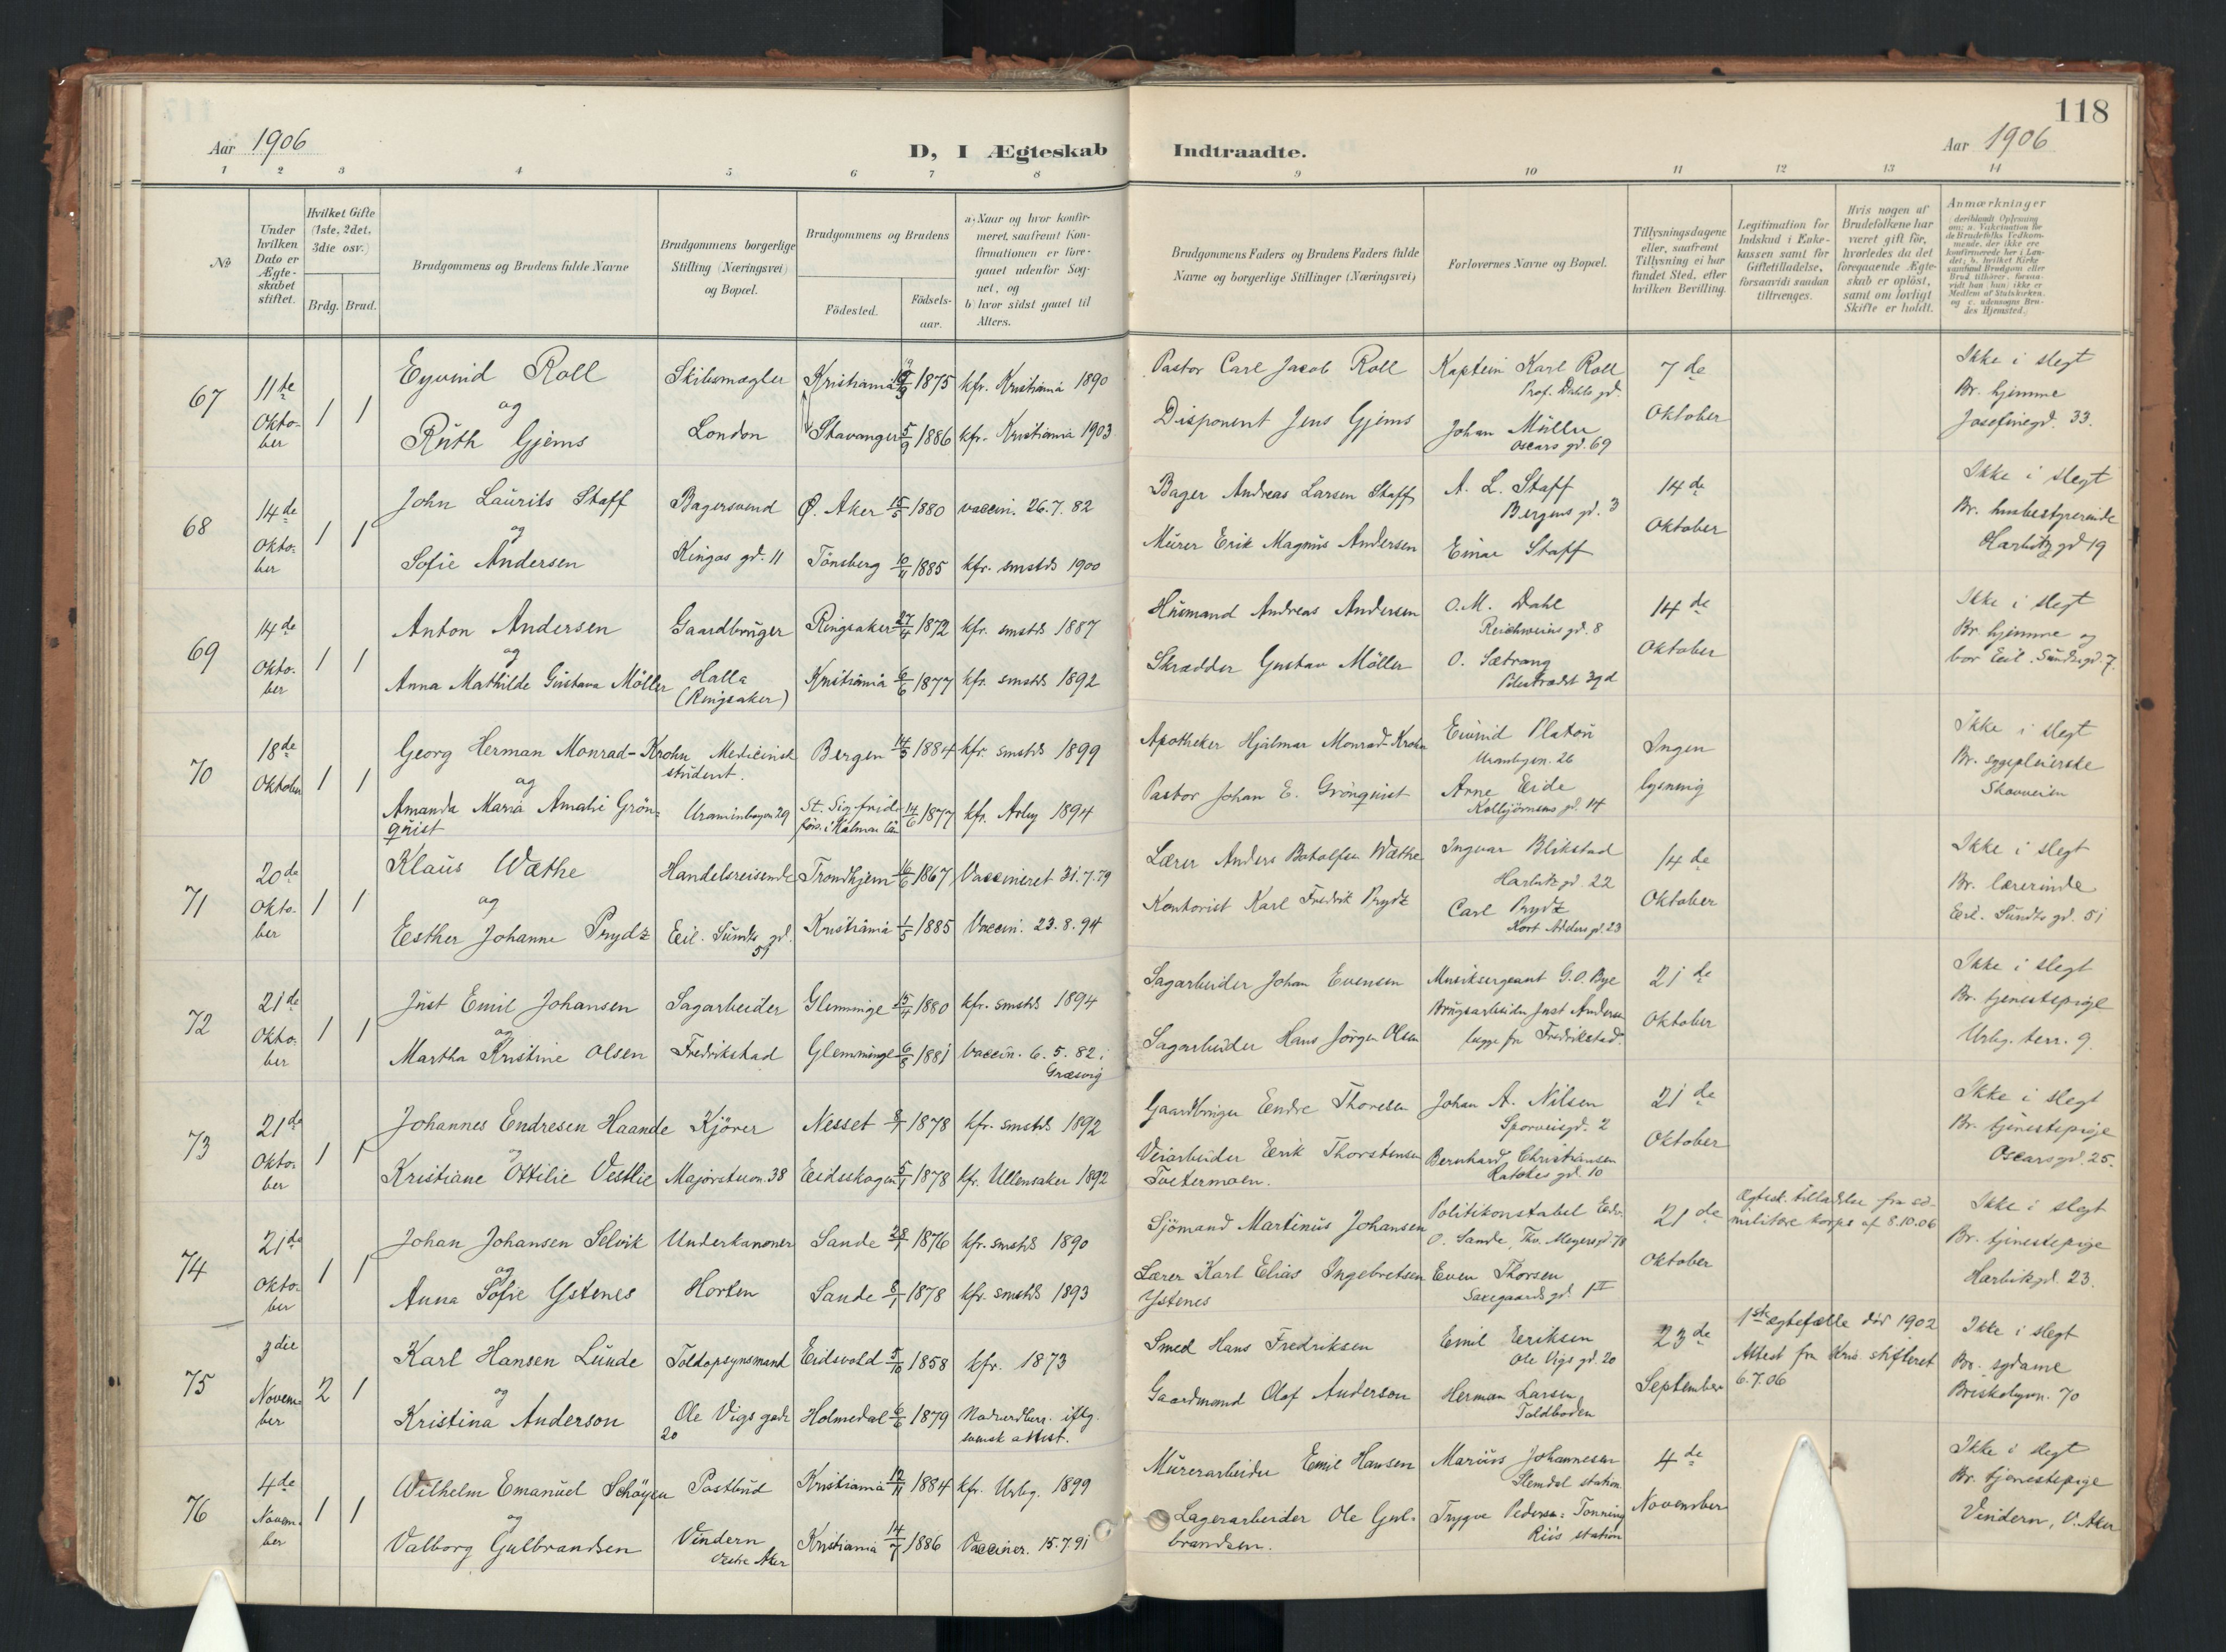 118
Aar 1906
D, I Ægteskab Indtraadte.
Aar 1906
1 2 3 4 5 6 7 8 9 10 11 12 13 14
No
Under
hvilken
Dato er
Ægte-
skabet
stiftet.
Hvilket Gifte
(1ste, 2det,
3die osv.)
Brdg. Brud.
Brudgommens og Brudens fulde Navne
Brudgommens borgerlige
Stilling (Næringsvei)
og Bopæl.
Brudgommens og Brudens
Födested.
Födsels-
aar.
a) Naar og hvor konfir-
meret, saafremt Kon-
firmationen er fore-
gaaet udenfor Sog-
net, og
b) hvor sidst gaaet til
Alters.
Brudgommens Faders og Brudens Faders fulde
Navne og borgerlige Stillinger (Næringsvei)
Forlovernes Navne og Bopæl.
Tillysningsdagene
eller, saafremt
Tillysning ei har
fundet Sted, efter
hvilken Bevilling.
Legitimation for
Indskud i Enke-
kassen samt for
Giftetilladelse,
forsaavidt saadan
tiltrænges.
Hvis nogen af
Brudefolkene har
været gift för,
hvorledes da det
foregaaende Ægte-
skab er oplöst,
samt om lovligt
Skifte er holdt.
Anmærkninger
(deriblandt Oplysning
om: a. Vakcination for
de Brudefolks Vedkom-
mende, der ikke ere
konfirmerede her i Lan-
det; b. hvilket Kirke-
samfund Brudgom eller
Brud tilhörer, forsaa-
vidt han (hun) ikke er
Medlem af Statskirken,
og c. udensogns Bru-
des Hjemsted.)
67
11te
Okto-
ber
1 1
Eyvind Roll
og
Ruth Gjems
Skibsmægler
London
Kristiania 1875
Stavanger 5/9 1886
kfr. Kristiania 1890
kfr. Kristiania 1903
Pastor Carl Jacob Roll
Disponent Jens Gjems
Kaptein Karl Roll
Prof. Dahls gd.
Johan Müller
Oscars gd. 69
7de
Oktober
Ikke i slegt
Br. hjemme
Josefinegd. 33.
68
14de
Okto-
ber
1 1
John Laurits Staff
og
Sofie Andersen
Bagersvend
Kingos gd. 11
Ø. Aker 15/5 1880
Tönsberg 10/11 1885
vaccin. 26.7.82
kfr. smstds 1900
Bager Andreas Larsen Staff
Murer Erik Magnus Andersen
A. L. Staff
Bergens gd. 3
Einar Staff
14de
Oktober
Ikke i slegt
Br. husbestyrerinde
Harbitz gd 19
69
14de
Okto-
ber
1 1
Anton Andersen
og
Anna Mathilde Gustava Möller
Gaardbruger
Halla
(Ringsaker)
Ringsaker 27/4 1872
Kristiania 6/6 1877
kfr. smstds 1887
kfr. smstds 1892
Husmand Andreas Andersen
Skrædder Gustav Möller
O. M. Dahl
Reichweins gd. 8
O. Sætrang
Pilestrædet 39 d
14de
Oktober
Ikke i slegt
Br. hjemme og
bor Eil. Sundtsgd. 7.
70
18de
Oktober
1 1
Georg Herman Monrad-Krohn
og
Amanda Maria Amalie Grön-
quist
Medicinsk
student.
Uranienbgvn 29
Bergen 14/3 1884
St. Sigfrids
förs. i Kalmar län 14/6 1877
kfr. smstds 1899
kfr. Arby 1894
Apotheker Hjalmar Monrad-Krohn
Pastor Johan E. Grönquist
Eivind Platou
Uranbgvn. 26
Arne Eide
Kolbjörnsens gd. 14
Ingen
lysning
Ikke i slegt
Br. sygepleierske
Skovveien
71
20de
Okto-
ber
1 1
Klaus Wæthe
og
Esther Johanne Prydz
Handelsreisende
Eil. Sundts gd.
51
Trondhjem 16/6 1867
Kristiania 1/5 1885
Vaccineret 31.7.79
Vaccin. 23.8.94
Lærer Anders Botolfsen Wæthe
Kontorist Karl Fredrik Prydz
Ingvar Blikstad
Harbitz gd. 22
Carl Prydz
Kort Adelers gd. 23
14de
Oktober
Ikke i slegt
Br. lærerinde
Eil. Sundts gd. 51
72
21de
Okto-
ber
1 1
Just Emil Johansen
og
Martha Kristine Olsen
Sagarbeider
Fredrikstad
Glemminge 15/4 1880
Glemminge 6/8 1881
kfr. smstds 1894
vaccin. 6.5.82 i
Græsvig
Sagarbeider Johan Evensen
Sagarbeider Hans Jörgen Olsen
Musiksergeant G. O. Bye
Brugsarbeider Just Andersen
begge fra Fredrikstad
21de
Oktober
Ikke i slegt
Br. tjenestepige
Urbg. terr. 9.
73
21de
Okto-
ber
1 1
Johannes Endresen Haande
og
Kristiane Ottilie Vestlie
Kjörer
Majorstuvn. 38
Nesset 8/7 1878
Eidsskogen 5/1 1878
kfr. smstds 1892
kfr. Ullensaker 1892
Gaardbruger Endre Thoresen
Veiarbeider Erik Thorstensen
Tvetermoen.
Johan A. Nilsen
Sporveisgd. 2
Bernhard Christiansen
Ratkes gd. 10
21de
Oktober
Ikke i slegt
Br. tjenestepige
Oscarsgd. 25.
74
21de
Okto-
ber
1 1
Johan Johansen Selvik
og
Anna Sofie Ystenes
Underkanoner
Horten
Sande 28/1 1876
Sande 8/1 1878
kfr. smstds 1890
kfr. smstds 1893
Sjömand Martinus Johansen
Lærer Karl Elias Ingebretsen
Ystenes
Politikonstabel
O. Sande, Thv. Meyersgd. 78
Even Thorsen
Saxegaards gd. 1 II
21de
Oktober
Ægtesk. tilladelse fra sö-
militære korps af 8.10.06
Ikke i slegt
Br. tjenestepige
Harbitzgd. 23.
75
3die
Novem-
ber
2 1
Karl Hansen Lunde
og
Kristina Anderson
Toldopsynsmand
Ole Vigs gade
20
Eidsvold 5/10 1858
Holmedal 6/6 1879
kfr. 1873
Nadverdber. iflg.
svensk attest.
Smed Hans Fredriksen
Gaardmand Olof Anderson
Emil Eriksen
Ole Vigs gd. 20
Herman Larsen,
Toldboden
23de
September
1ste ægtefælle död 1902
Attest fra Kria skifteret
6.7.06
Ikke i slegt
Br. sydame
Briskebyvn. 70
76
4de
Novem-
ber
1 1
Wilhelm Emanuel Schöyen
og
Valborg Gulbrandsen
Postbud
Vindern
Vestre Aker
Kristiania 12/11 1884
Kristiania 14/7 1886
kfr. Urbg. 1899
Vacciner. 15.7.91
Murerarbeider Emil Hansen
Lagerarbeider Ole Gul-
brandsen.
Marius Johannesen
Slemdal station
Trygve Pedersen
Riis station
4de
November
Ikke i slegt
Br. tjenestepige
Vindern, V. Aker